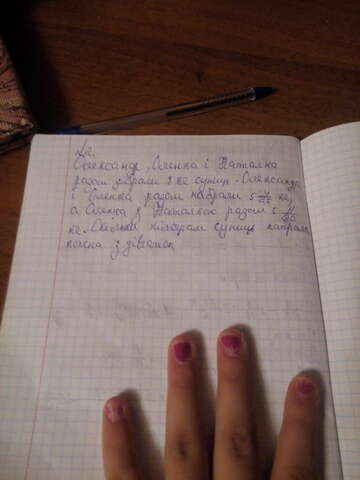 №2.
Олександр, Оленка і Наталка
разом зібрали 8 кг суниць. Олександр
і Оленка разом набрали 5 кг,
а Оленка з Наталкою разом 5
кг. Скільки кілограм суниць набрала
кожна з дівчаток